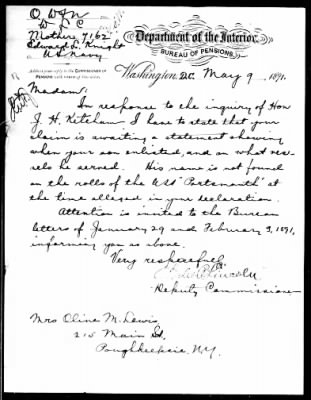 O W & N
W. F. C
Mother 7162
Edward S. Knight
U.S. Navy
Department of the Interior,
BUREAU OF PENSIONS,
Washington, D.C. May 9 1891.
Madam:
In response to the inquiry of Hon
J. H. Ketcham I have to state that your
claim is awaiting a statement showing
when your son enlisted, and on what ves-
sels he served. His name is not found
on the rolls of the USS "Portsmouth" at
the time alleged in your declaration.
Attention is invited to the Bureau
letters of January 29 and February 3, 1891,
informing you as above.
Very respectfully
Lincoln
Deputy Commissioner
Mrs Oline M. Lewis
215 Main St.
Poughkeepsie, N.Y.